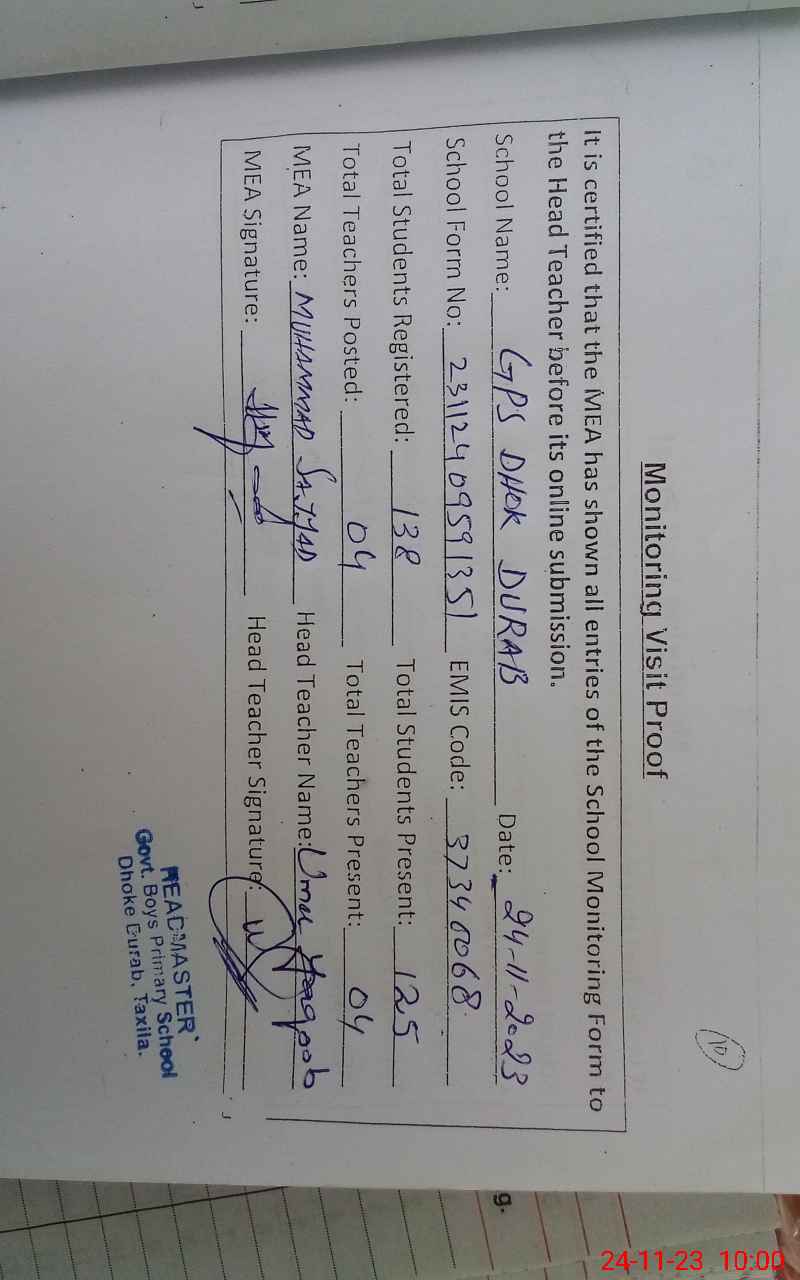 10
Monitoring Visit Proof
It is certified that the MEA has shown all entries of the School Monitoring Form to
the Head Teacher before its online submission.
School Name: GPS DHOK DURAB Date: 24-11-2023
School Form No: 231124095951351 EMIS Code: 37340068
Total Students Registered: 138 Total Students Present: 125
Total Teachers Posted: 04 Total Teachers Present: 04
MEA Name: MUHAMMAD SAJJAD Head Teacher Name: Umar Yaqoob
MEA Signature: Head Teacher Signature:
HEADMASTER
Govt. Boys Primary School
Dhoke Durab, Taxila.
g.
24-11-23 10:00